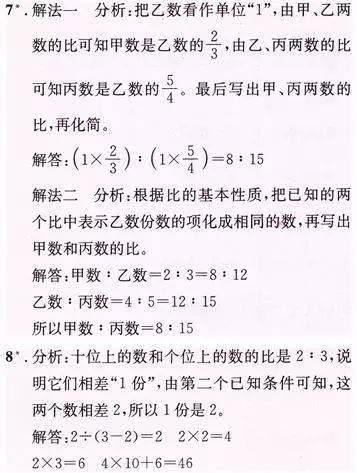 7*. 解法一 分析:把乙数看作单位“1”,由甲、乙两
数的比可知甲数是乙数的2/3,由乙、丙两数的比
可知丙数是乙数的5/4。最后写出甲、丙两数的
比,再化简。
解答:(1×2/3)∶(1×5/4)=8∶15
解法二 分析:根据比的基本性质,把已知的两
个比中表示乙数份数的项化成相同的数,再写出
甲数和丙数的比。
解答:甲数∶乙数=2∶3=8∶12
乙数∶丙数=4∶5=12∶15
所以甲数∶丙数=8∶15
8*. 分析:十位上的数和个位上的数的比是2∶3,说
明它们相差“1份”,由第二个已知条件可知,这
两个数相差2,所以1份是2。
解答:2÷(3-2)=2 2×2=4
2×3=6 4×10+6=46